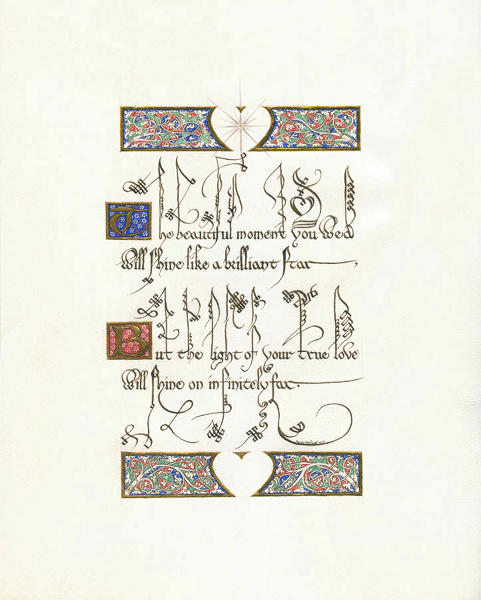 The beautiful moment you wed
Will shine like a brilliant star
But the light of your true love
Will shine on infinitely far.